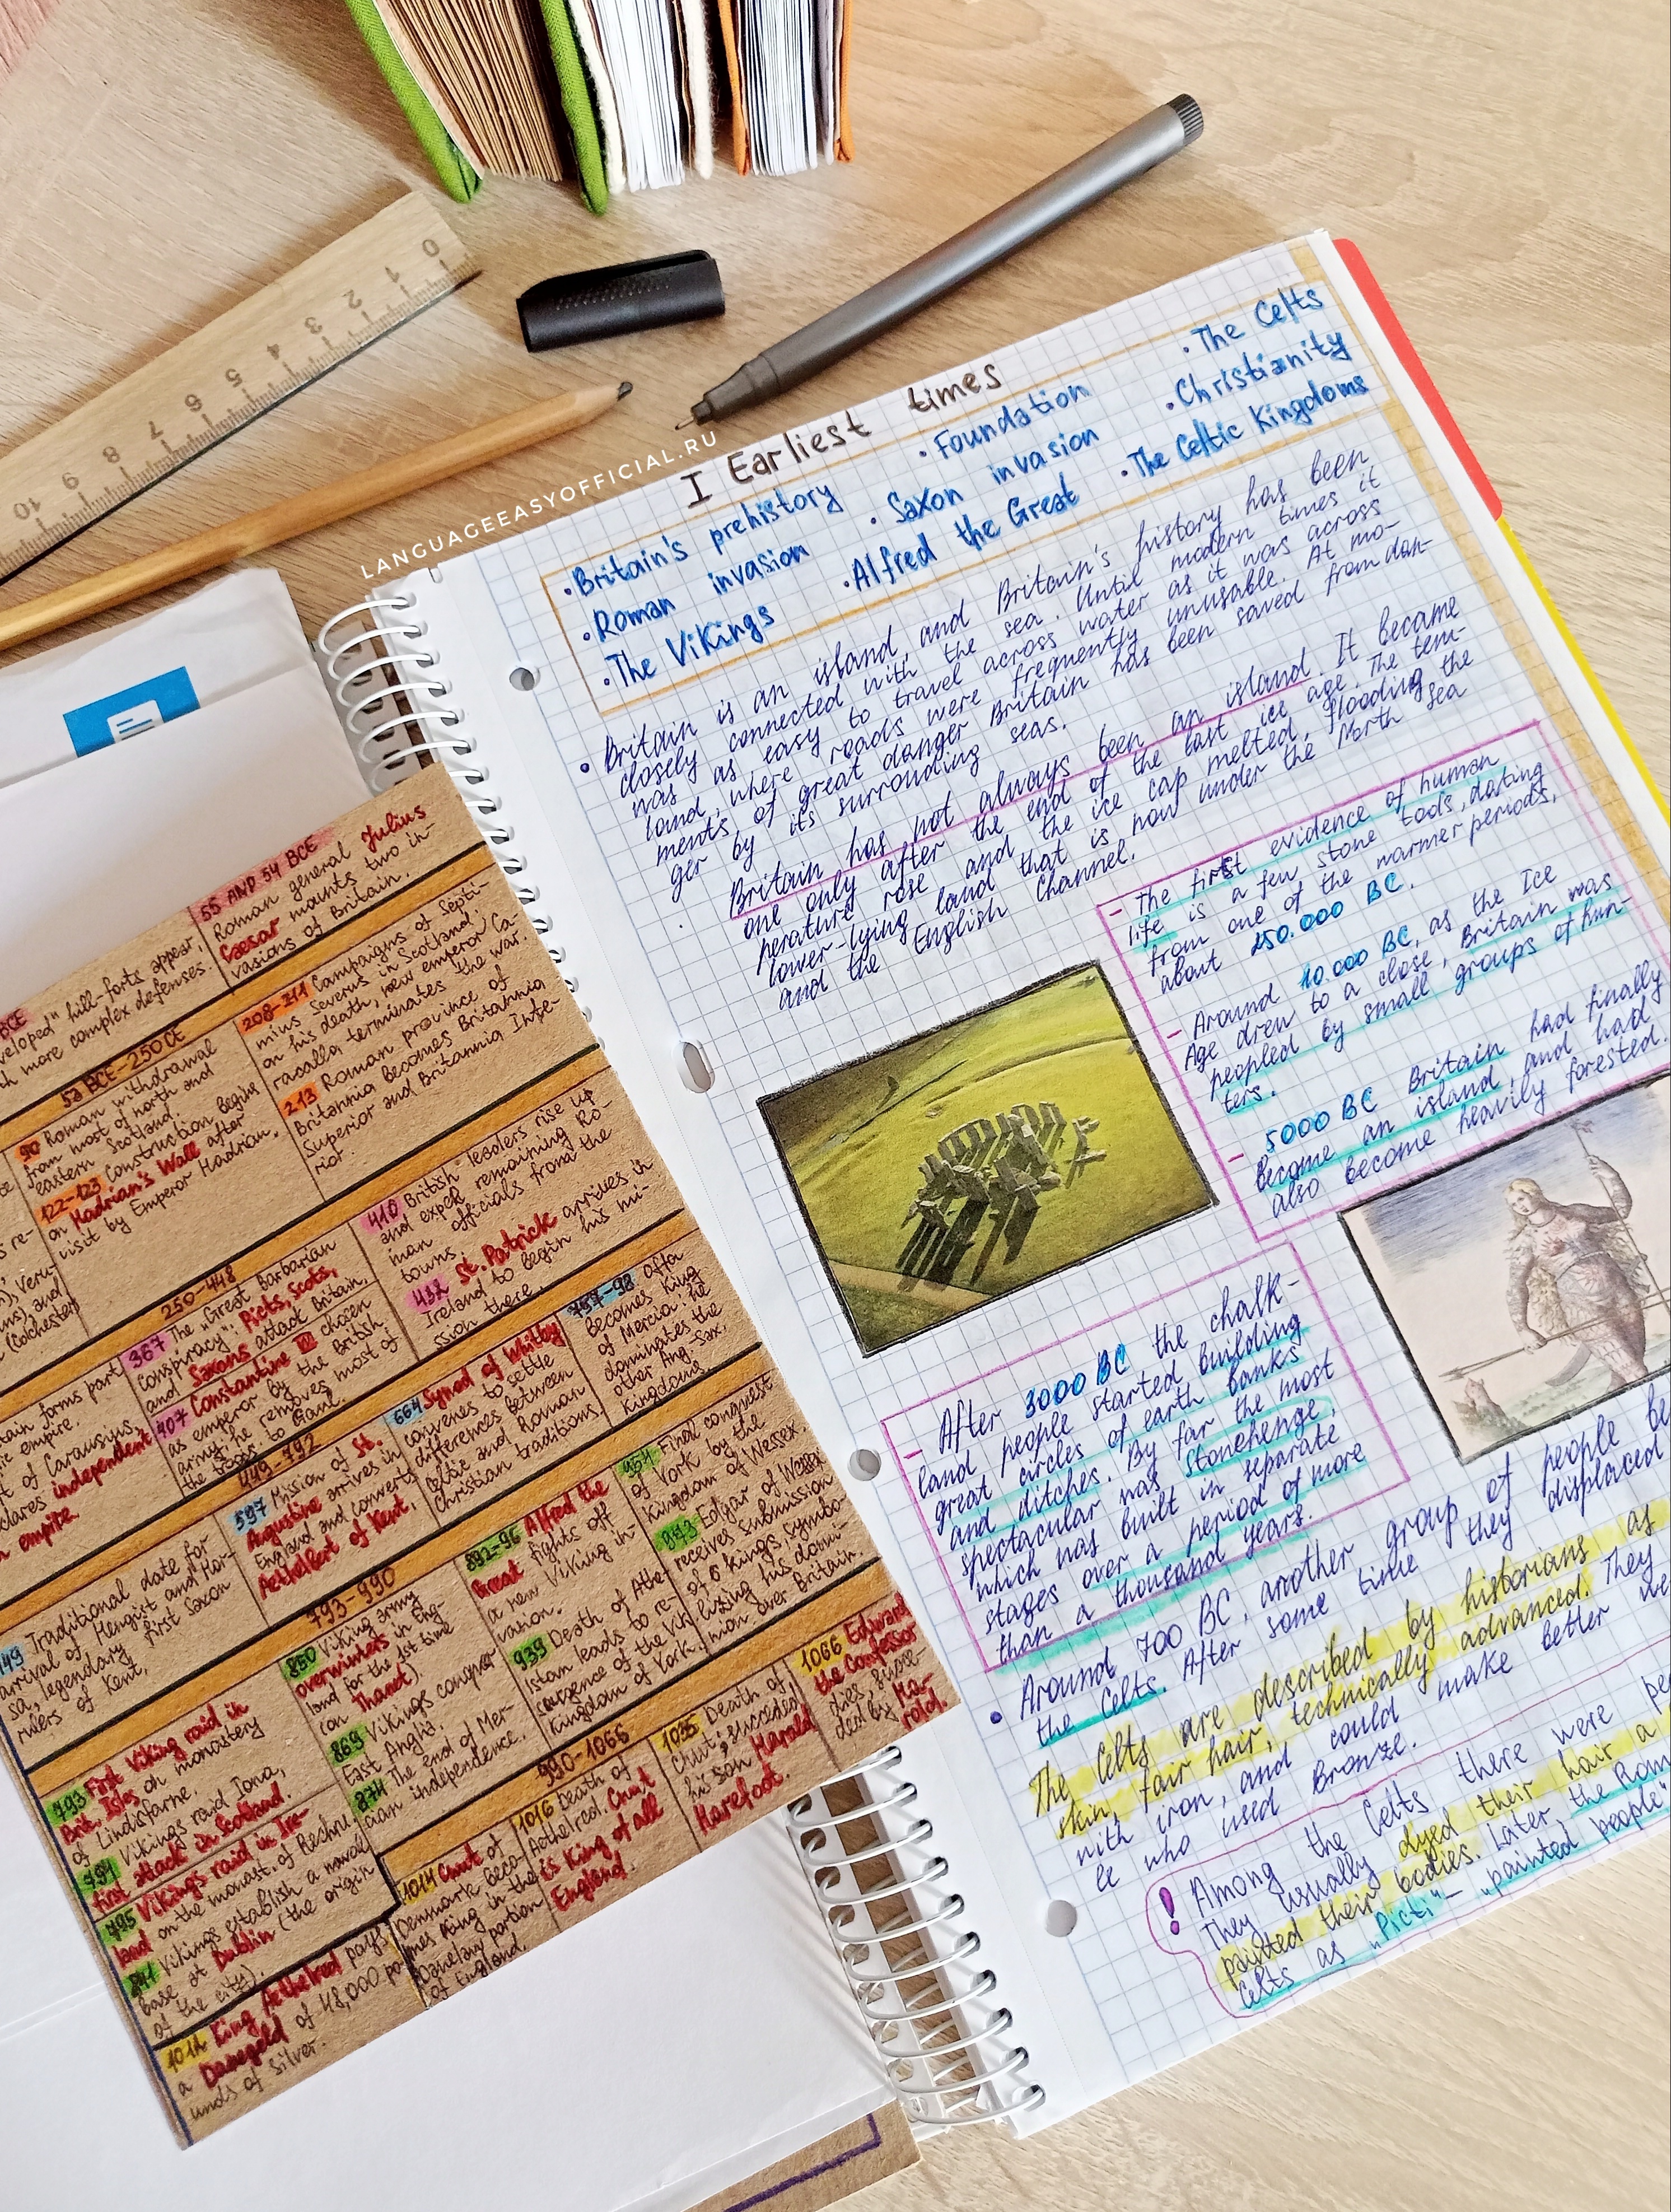 LANGUAGEEASYOFFICIAL.RU
0 1 2 3 4 5 6 7 8 9 10
I Earliest times
• Britain's prehistory
• Foundation
• The Celts
• Roman invasion
• Saxon invasion
• Christianity
• The Vikings
• Alfred the Great
• The Celtic Kingdoms
• Britain is an island, and Britain's history has been
closely connected with the sea. Until modern times it
was as easy to travel across water as it was across
land, where roads were frequently unusable. At mo-
ments of great danger Britain has been saved from dan-
ger by its surrouding seas.
Britain has not always been an island. It became
one only after the end of the last ice age. The tem-
perature rose and the ice cap melted, flooding the
lower-lying land that is now under the North Sea
and the English Channel.
- The first evidence of human
life is a few stone tools, dating
from one of the warmer periods,
about 250.000 BC.
- Around 10 000 BC, as the Ice
Age drew to a close, Britain was
peopled by small groups of hun-
ters.
- 5000 BC Britain had finally
become an island, and had
also become heavily forested.
- After 3000 BC the chalk-
land people started building
great circles of earth banks
and ditches. By far the most
spectacular was Stonehenge,
which was built in separate
stages over a period of more
than a thousand years.
• Around 700 BC, another group of people be
the Celts. After some time they displaced
The Celts are described by historians as
skin, fair hair, technically advanced. They
with iron, and could make better we
le who used Bronze.
! Among the Celts there were pe
They usually dyed their hair a
painted their bodies. Later, the Rom
Celts as „Picti" – „painted people"
BCE
veloped" hill-forts appear,
th more complex defenses.
55 AND 54 BCE
Roman general Julius
Caesar mounts two in-
vasions of Britain.
53 BCE-250 CE
90 Roman withdrawal
from most of north and
eastern Scotland.
122-123 Construction begins
on Hadrian's Wall after
visit by Emperor Hadrian.
208-211 Campaigns of Septi-
mius Severus in Scotland;
on his death, new emperor Ca-
racalla terminates the war.
213 Roman province of
Britannia becomes Britannia
Superior and Britannia Infe-
rior.
s re-
), Veru-
ns) and
(Colchester)
250-448
tain forms part
ic empire.
t of Carausius,
clares independent
n empire.
367 The „Great Barbarian
conspiracy": Picts, Scots,
and Saxons attack Britain.
407 Constantine III chosen
as emperor by the British
army; he removes most of
the troops to Gaul.
410 British leaders rise up
and expel remaining Ro-
man officials from the
towns.
432 St. Patrick arrives in
Ireland to begin his mi-
ssion there.
449-792
449 Traditional date for
arrival of Hengist and Hor-
sa, legendary first Saxon
rulers of Kent.
597 Mission of St.
Augustine arrives in
England and converts
Aethelbert of Kent.
664 Synod of Whitby
convenes to settle
differences between
Celtic and Roman
Christian traditions.
757-96 Offa
becomes King
of Mercia; he
dominates the
other Ang-Sax.
Kingdoms.
793-990
793 First Viking raid in
Brit. Isles, on monastery
of Lindisfarne.
794 Vikings raid Iona,
first attack in Scotland.
795 Vikings raid in Ire-
land on the monast. of Rechru.
841 Vikings establish a naval
base at Dublin (the origin
of the city).
850 Viking army
overwinters in Eng-
land for the 1st time
(on Thanet).
869 Vikings conquer
East Anglia.
874 The end of Mer-
cian independence.
892-96 Alfred the
Great fights off
a new Viking in-
vasion.
939 Death of Athel-
stan leads to re-
surgence of the Vik.
Kingdom of York.
954 Final conquest
of York by the
Kingdom of Wessex.
973 Edgar of Wessex
receives submission
of 6 kings, symbo-
lizing his domi-
nion over Britain.
990-1066
1012 King Aethelred pays
a Danegeld of 48,000 po-
unds of silver.
1014 Cnut of
Denmark beco-
mes King in the
Danelaw portion
of England.
1016 Death of
Aethelred. Cnut
is King of all
England.
1035 Death of
Cnut; succeeded
his son Harold
Harefoot.
1066 Edward
the Confessor
dies, succee-
ded by Ha-
rold.